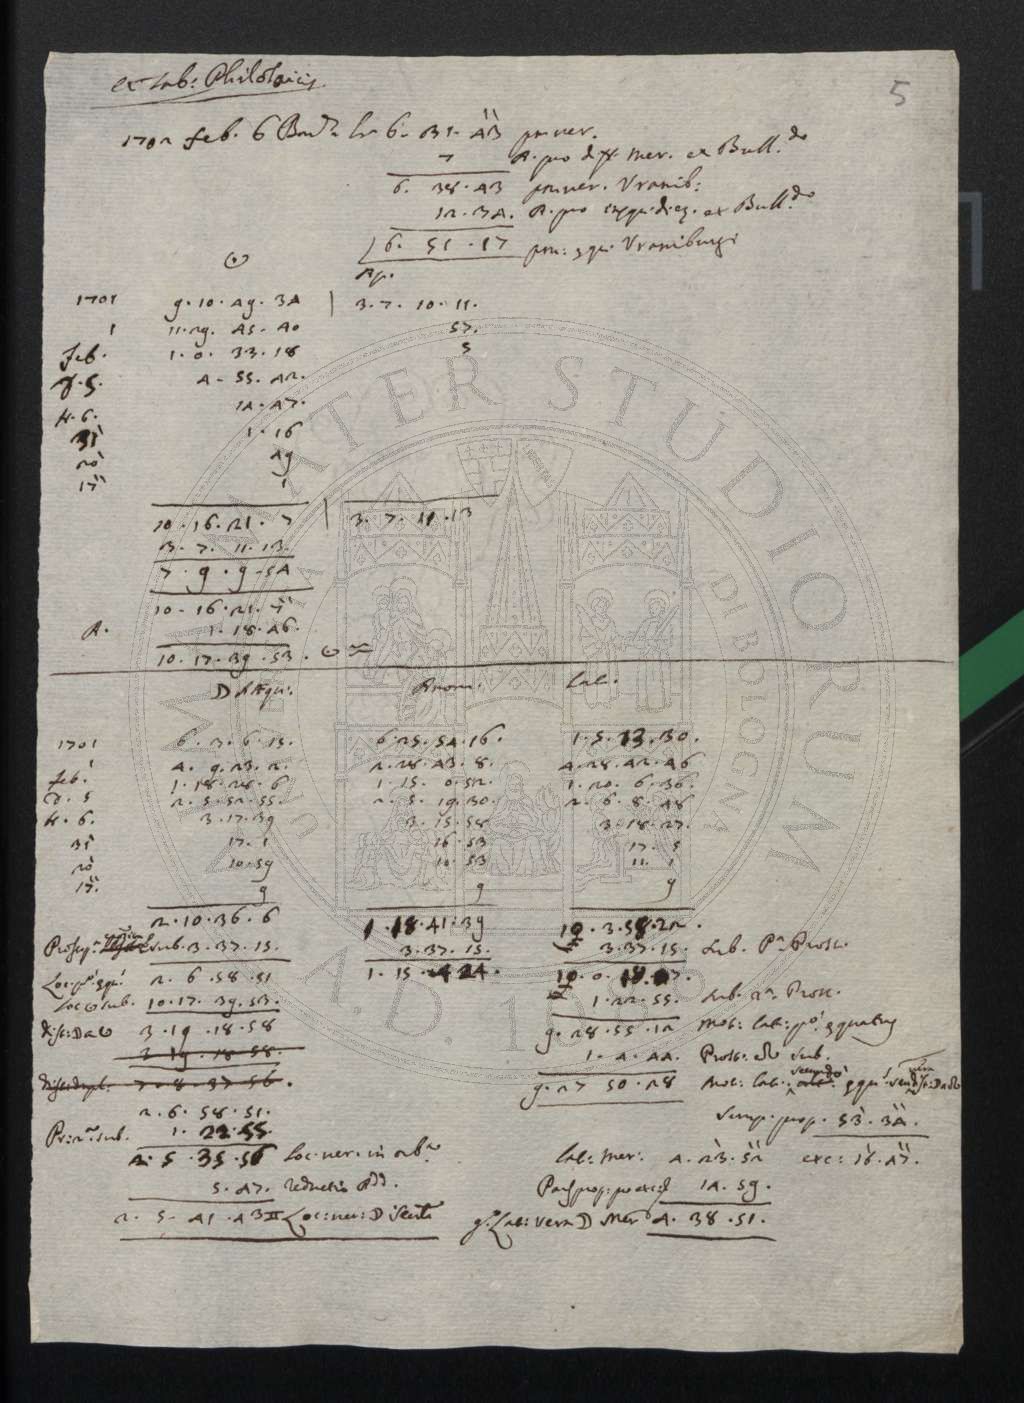 ex tab: Philolaicis.
5
1702 Feb. 6 Bon.æ h. 6. 31. 43 pm ver.
7 A. pro diff mer. ex Bull.do
6. 38. 43 pm ver. Vranib:
12. 34. A. pro æqu. di. ex Bull.do
6. 51. 17 pm: æqu. Vraniburgi
☉ Ap.
1701 9. 10. 49. 34 | 3. 7. 10. 11.
1 11. 29. 45. 40 57.
Feb. 1. 0. 33. 18 5
D. 5. 4. 55. 42.
H. 6. 14. 47.
51 1. 16
20 49
17 1
10. 16. 21. 7 | 3. 7. 11. 13
3. 7. 11. 13.
7. 9. 9. 54
10. 16. 21. 7
A. 1. 18. 46.
10. 17. 39. 53. ☉ ♒
D ab Æqu: Anom. Lat.
1701 6. 3. 6. 15. 6. 25. 54. 16. 1. 5. 13. 30.
1 4. 9. 23. 2. 2. 28. 43. 8. 4. 28. 42. 46
Feb. 1. 18. 28. 6 1. 15. 0. 52. 1. 20. 6. 36.
D. 5 2. 5. 52. 55. 2. 5. 19. 30. 2. 6. 8. 48
H. 6. 3. 17. 39 3. 15. 58 3. 18. 27.
31 17. 1 16 53 17. 5
20 10. 59 10. 53 11. 1
17. 9 9 9
2. 10. 36. 6 1. 18. 41. 39 10. 3. 58. 22.
sub. 3. 37. 15. 3. 37. 15. 3. 37. 15. sub. Pa Prost.
Loc. po æqu. 2. 6. 58. 51 1. 15. 4. 24. 10. 0. 18. 7.
Loc ☉ sub. 10. 17. 39. 53. 1. 22. 55. sub. 2a Prost.
dist: D a ☉ 3. 19. 18. 58 9. 28. 55. 12 Mot: lat: po æquatus
3. 19. 18. 58. 1. 4. 44. Prost. sub.
7. 8. 37. 56. 9. 27 50. 28 Mot: lat. secundo æqu.
2. 6. 58. 51. scrup. prop. 53. 34.
Pr: 2a sub. 1. 22. 55.
2. 5. 35. 56 Loc. ver. in orb.a lat: Mer. 4. 23. 52 exc: 16. 47.
5. 47. reductio add. Pars prop: pro exces 14. 59.
2. 5. 41. 43 ♊ Loc: ver: D g.o Lat: vera D Mer 4. 38. 51.